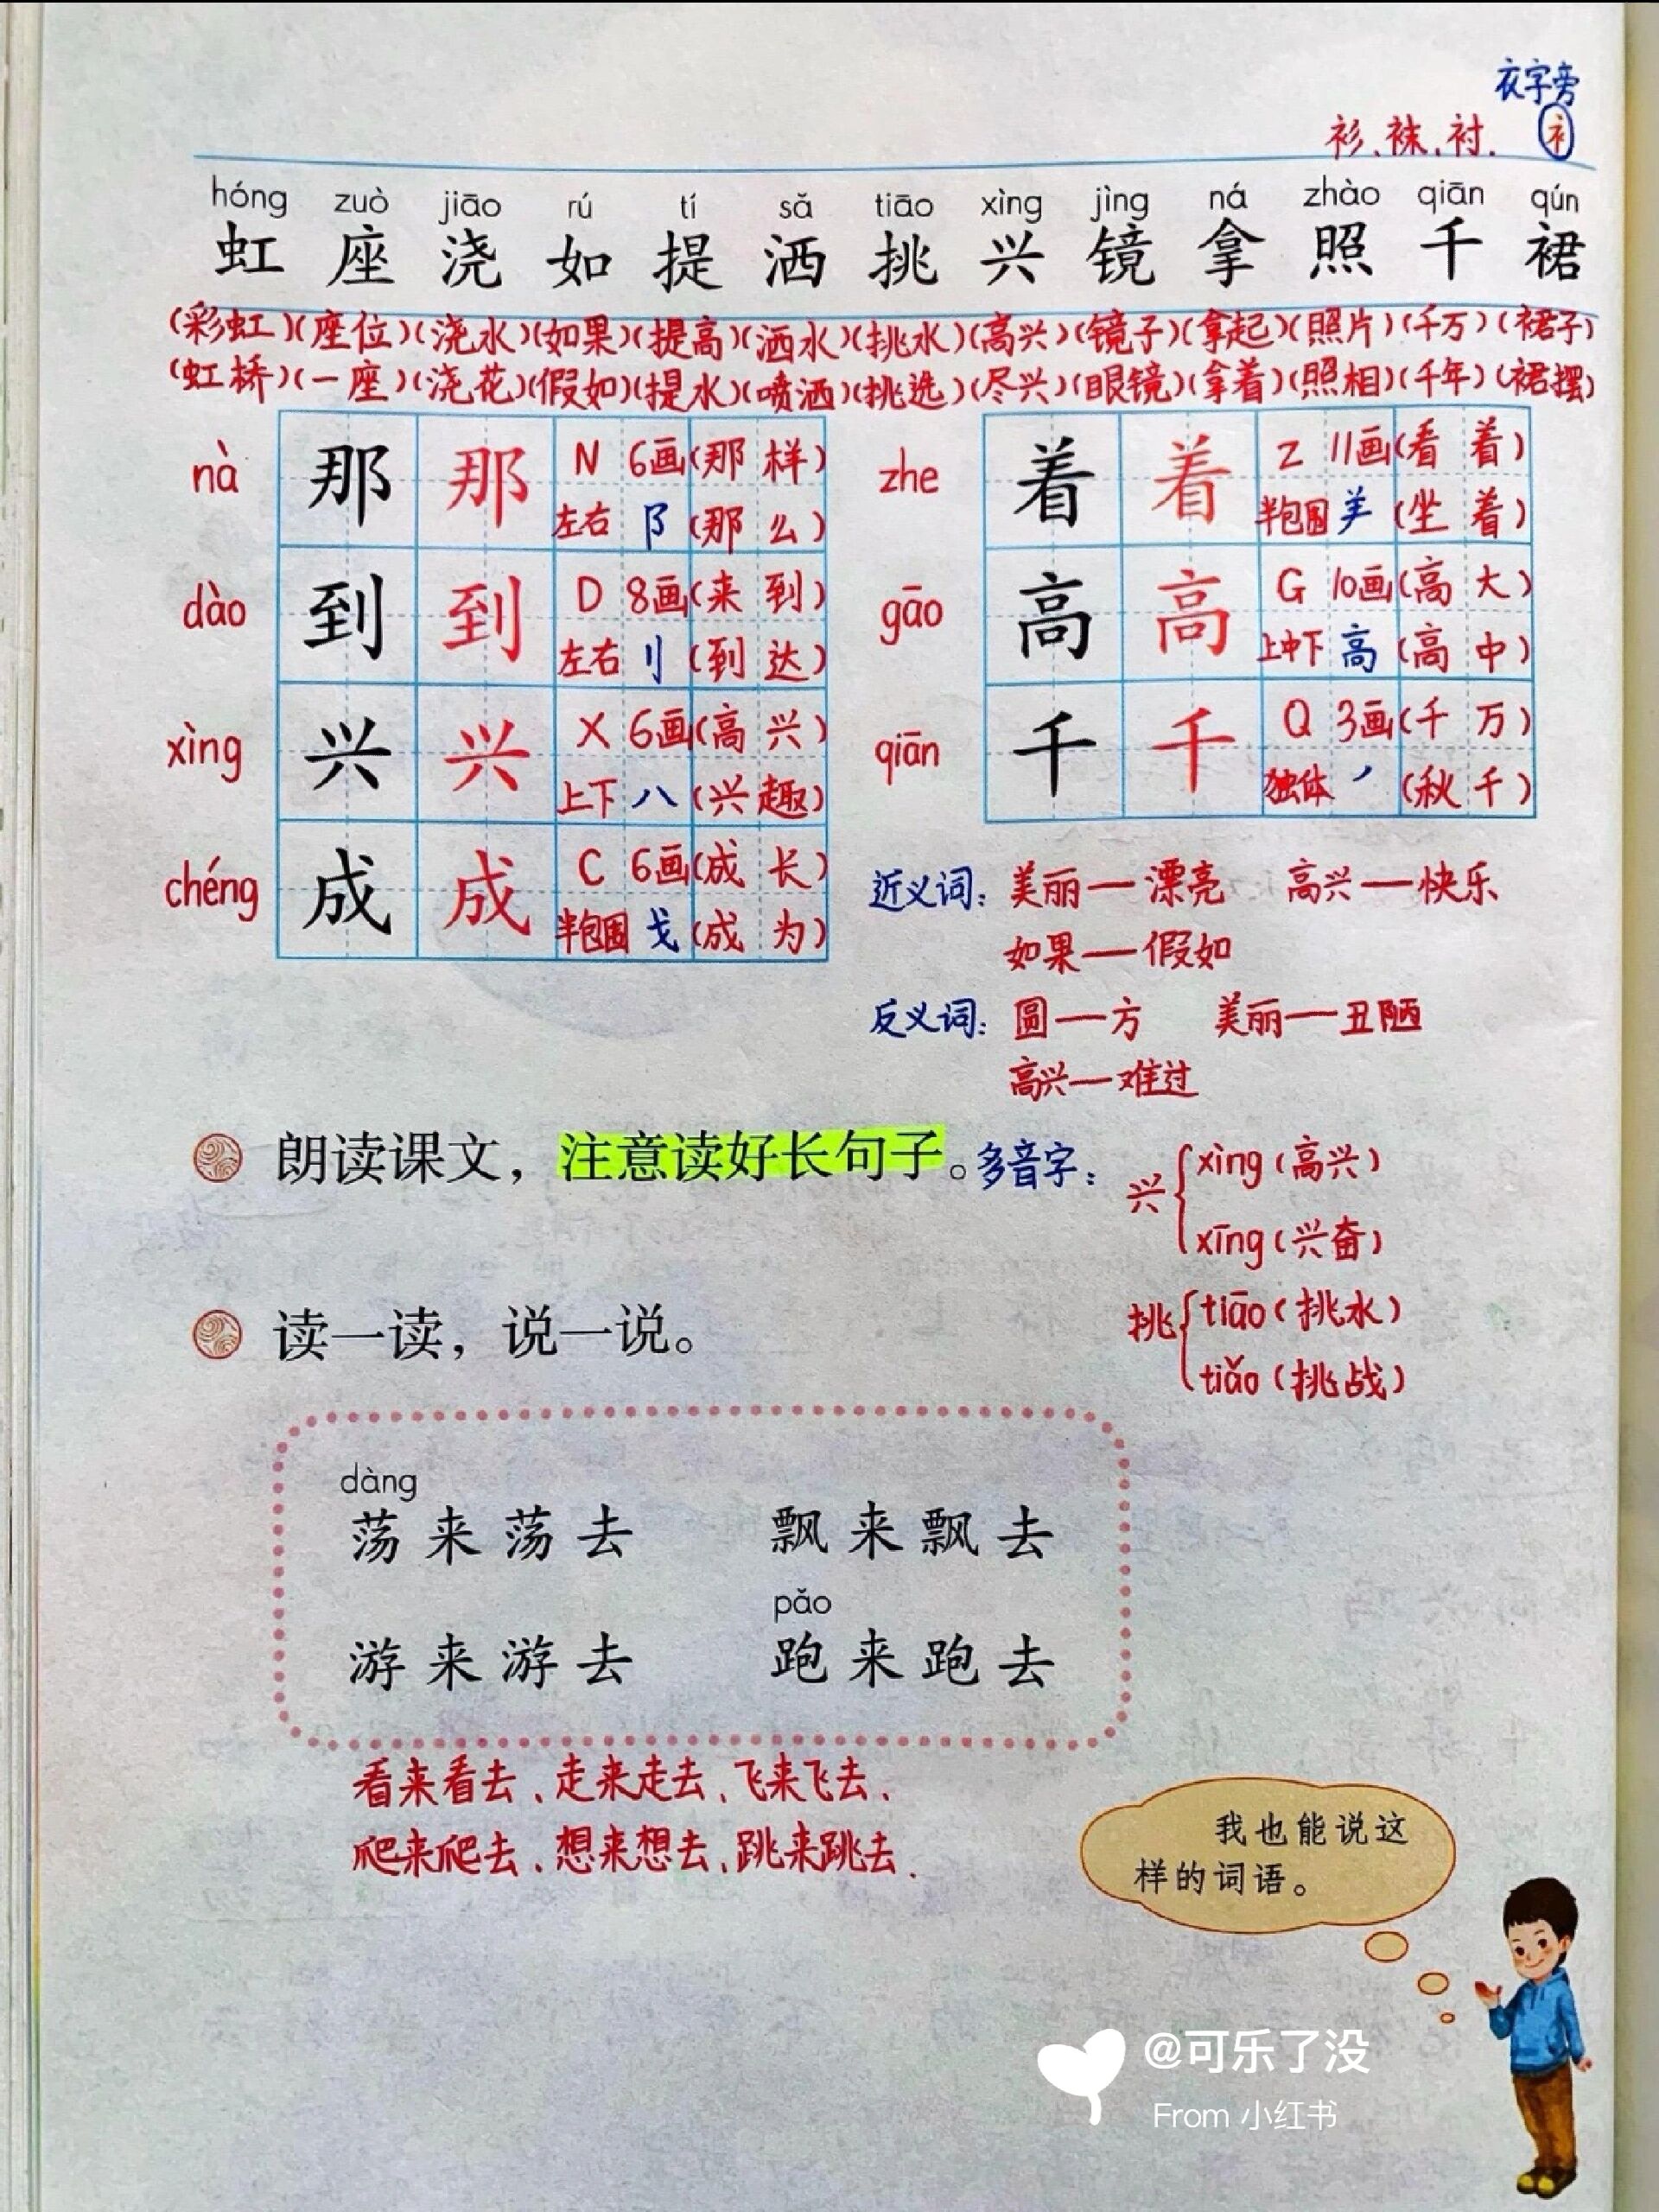 衣字旁
衫、袜、衬. 衤
hóng zuò jiāo rú tí sǎ tiāo xìng jìng ná zhào qiān qún
虹 座 浇 如 提 洒 挑 兴 镜 拿 照 千 裙
(彩虹)(座位)(浇水)(如果)(提高)(洒水)(挑水)(高兴)(镜子)(拿起)(照片)(千万)(裙子)
(虹桥)(一座)(浇花)(假如)(提水)(喷洒)(挑选)(尽兴)(眼镜)(拿着)(照相)(千年)(裙摆)
nà 那 那 N 6画(那样)
左右 阝 (那么)
dào 到 到 D 8画(来到)
左右 刂 (到达)
xìng 兴 兴 X 6画(高兴)
上下 八 (兴趣)
chéng 成 成 C 6画(成长)
半包围 戈 (成为)
zhe 着 着 Z 11画(看着)
半包围 羊 (坐着)
gāo 高 高 G 10画(高大)
上中下 高 (高中)
qiān 千 千 Q 3画(千万)
独体 丿 (秋千)
近义词: 美丽—漂亮 高兴—快乐
如果—假如
反义词: 圆—方 美丽—丑陋
高兴—难过
朗读课文，注意读好长句子。
多音字: 兴 xìng(高兴)
xīng(兴奋)
挑 tiāo(挑水)
tiǎo(挑战)
读一读，说一说。
dàng
荡来荡去 飘来飘去
pǎo
游来游去 跑来跑去
看来看去、走来走去、飞来飞去、
爬来爬去、想来想去、跳来跳去.
我也能说这
样的词语。
@可乐了没
From 小红书